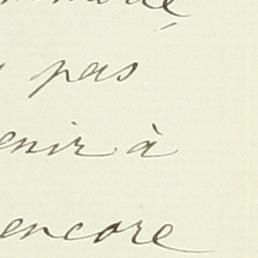 pas
enir à
encore